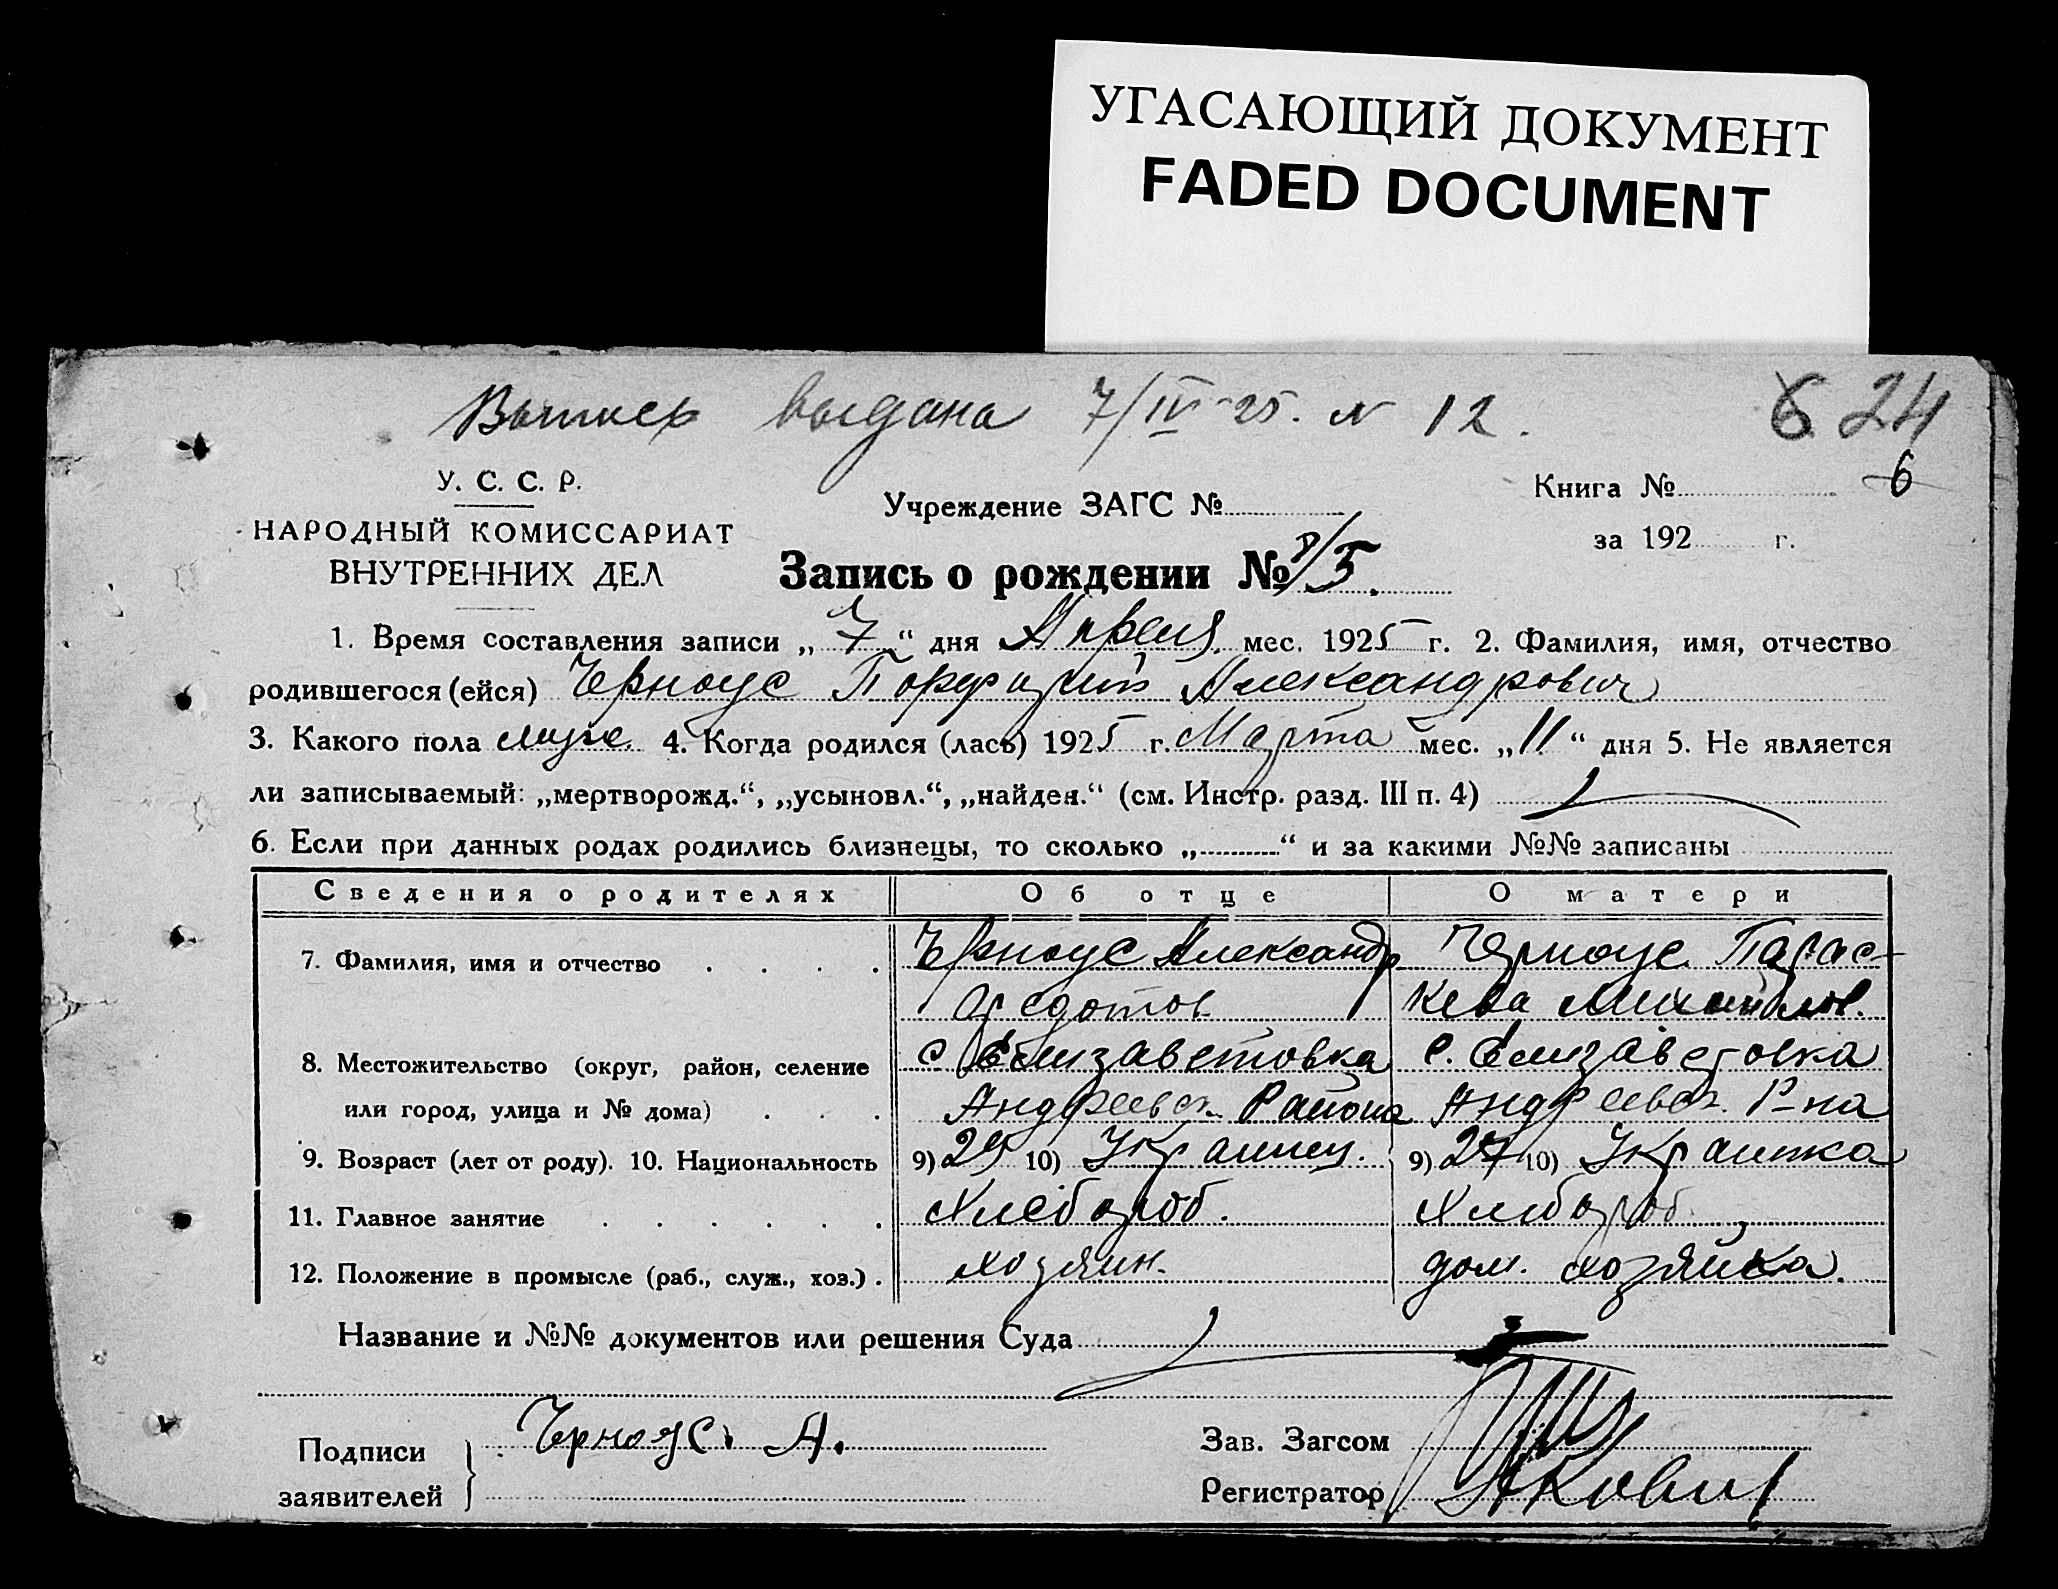 УГАСАЮЩИЙ ДОКУМЕНТ
FADED DOCUMENT
Выпись выдана 7/IV-25. N 12.
6 24
У. С. С. Р.
НАРОДНЫЙ КОМИССАРИАТ
ВНУТРЕННИХ ДЕЛ
Учреждение ЗАГС №
Книга № 6
за 192 г.
Запись о рождении № 5.
1. Время составления записи „7“ дня Апреля мес. 1925 г. 2. Фамилия, имя, отчество
родившегося (ейся) Черноус Порфирий Александрович
3. Какого пола муж. 4. Когда родился (лась) 1925 г. Марта мес. „11“ дня 5. Не является
ли записываемый: „мертворожд.“, „усыновл.“, „найден.“ (см. Инстр. разд. III п. 4)
6. Если при данных родах родились близнецы, то сколько „ “ и за какими №№ записаны
Сведения о родителях Об отце О матери
7. Фамилия, имя и отчество Черноус Александр Черноус Парас-
Федотов кева Михайлов.
8. Местожительство (округ, район, селение с Елизаветовка с. Елизаветовка
или город, улица и № дома) Андреевск. Района Андреевск. Р-на
9. Возраст (лет от роду). 10. Национальность 9) 29 10) Украинец. 9) 27 10) Украинка
11. Главное занятие Хлебороб. Хлебороб
12. Положение в промысле (раб., служ., хоз.) хозяин. дом. хозяйка.
Название и №№ документов или решения Суда
Подписи
заявителей
Черноус. А.
Зав. Загсом
Регистратор